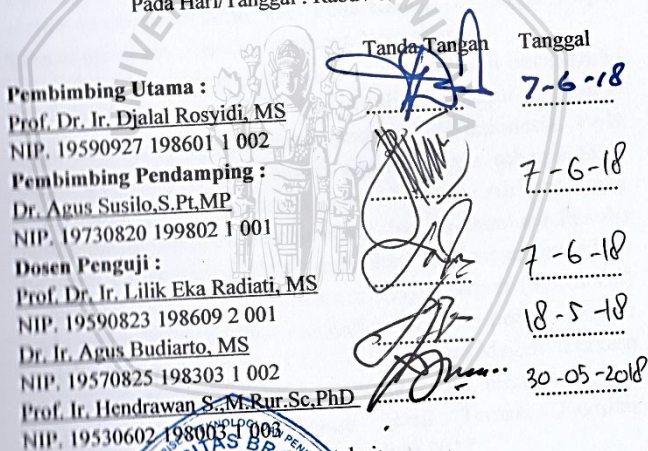 Pada Hari/Tanggal :
Tanda Tangan Tanggal
Pembimbing Utama :
Prof. Dr. Ir. Djalal Rosyidi, MS 7-6-18
NIP. 19590927 198601 1 002
Pembimbing Pendamping :
Dr. Agus Susilo,S.Pt,MP 7-6-18
NIP. 19730820 199802 1 001
Dosen Penguji :
Prof. Dr. Ir. Lilik Eka Radiati, MS 7-6-18
NIP. 19590823 198609 2 001
Dr. Ir. Agus Budiarto, MS 18-5-18
NIP. 19570825 198303 1 002
Prof. Ir. Hendrawan S.,M.Rur.Sc,PhD 30-05-2018
NIP. 19530602 198003 1 003